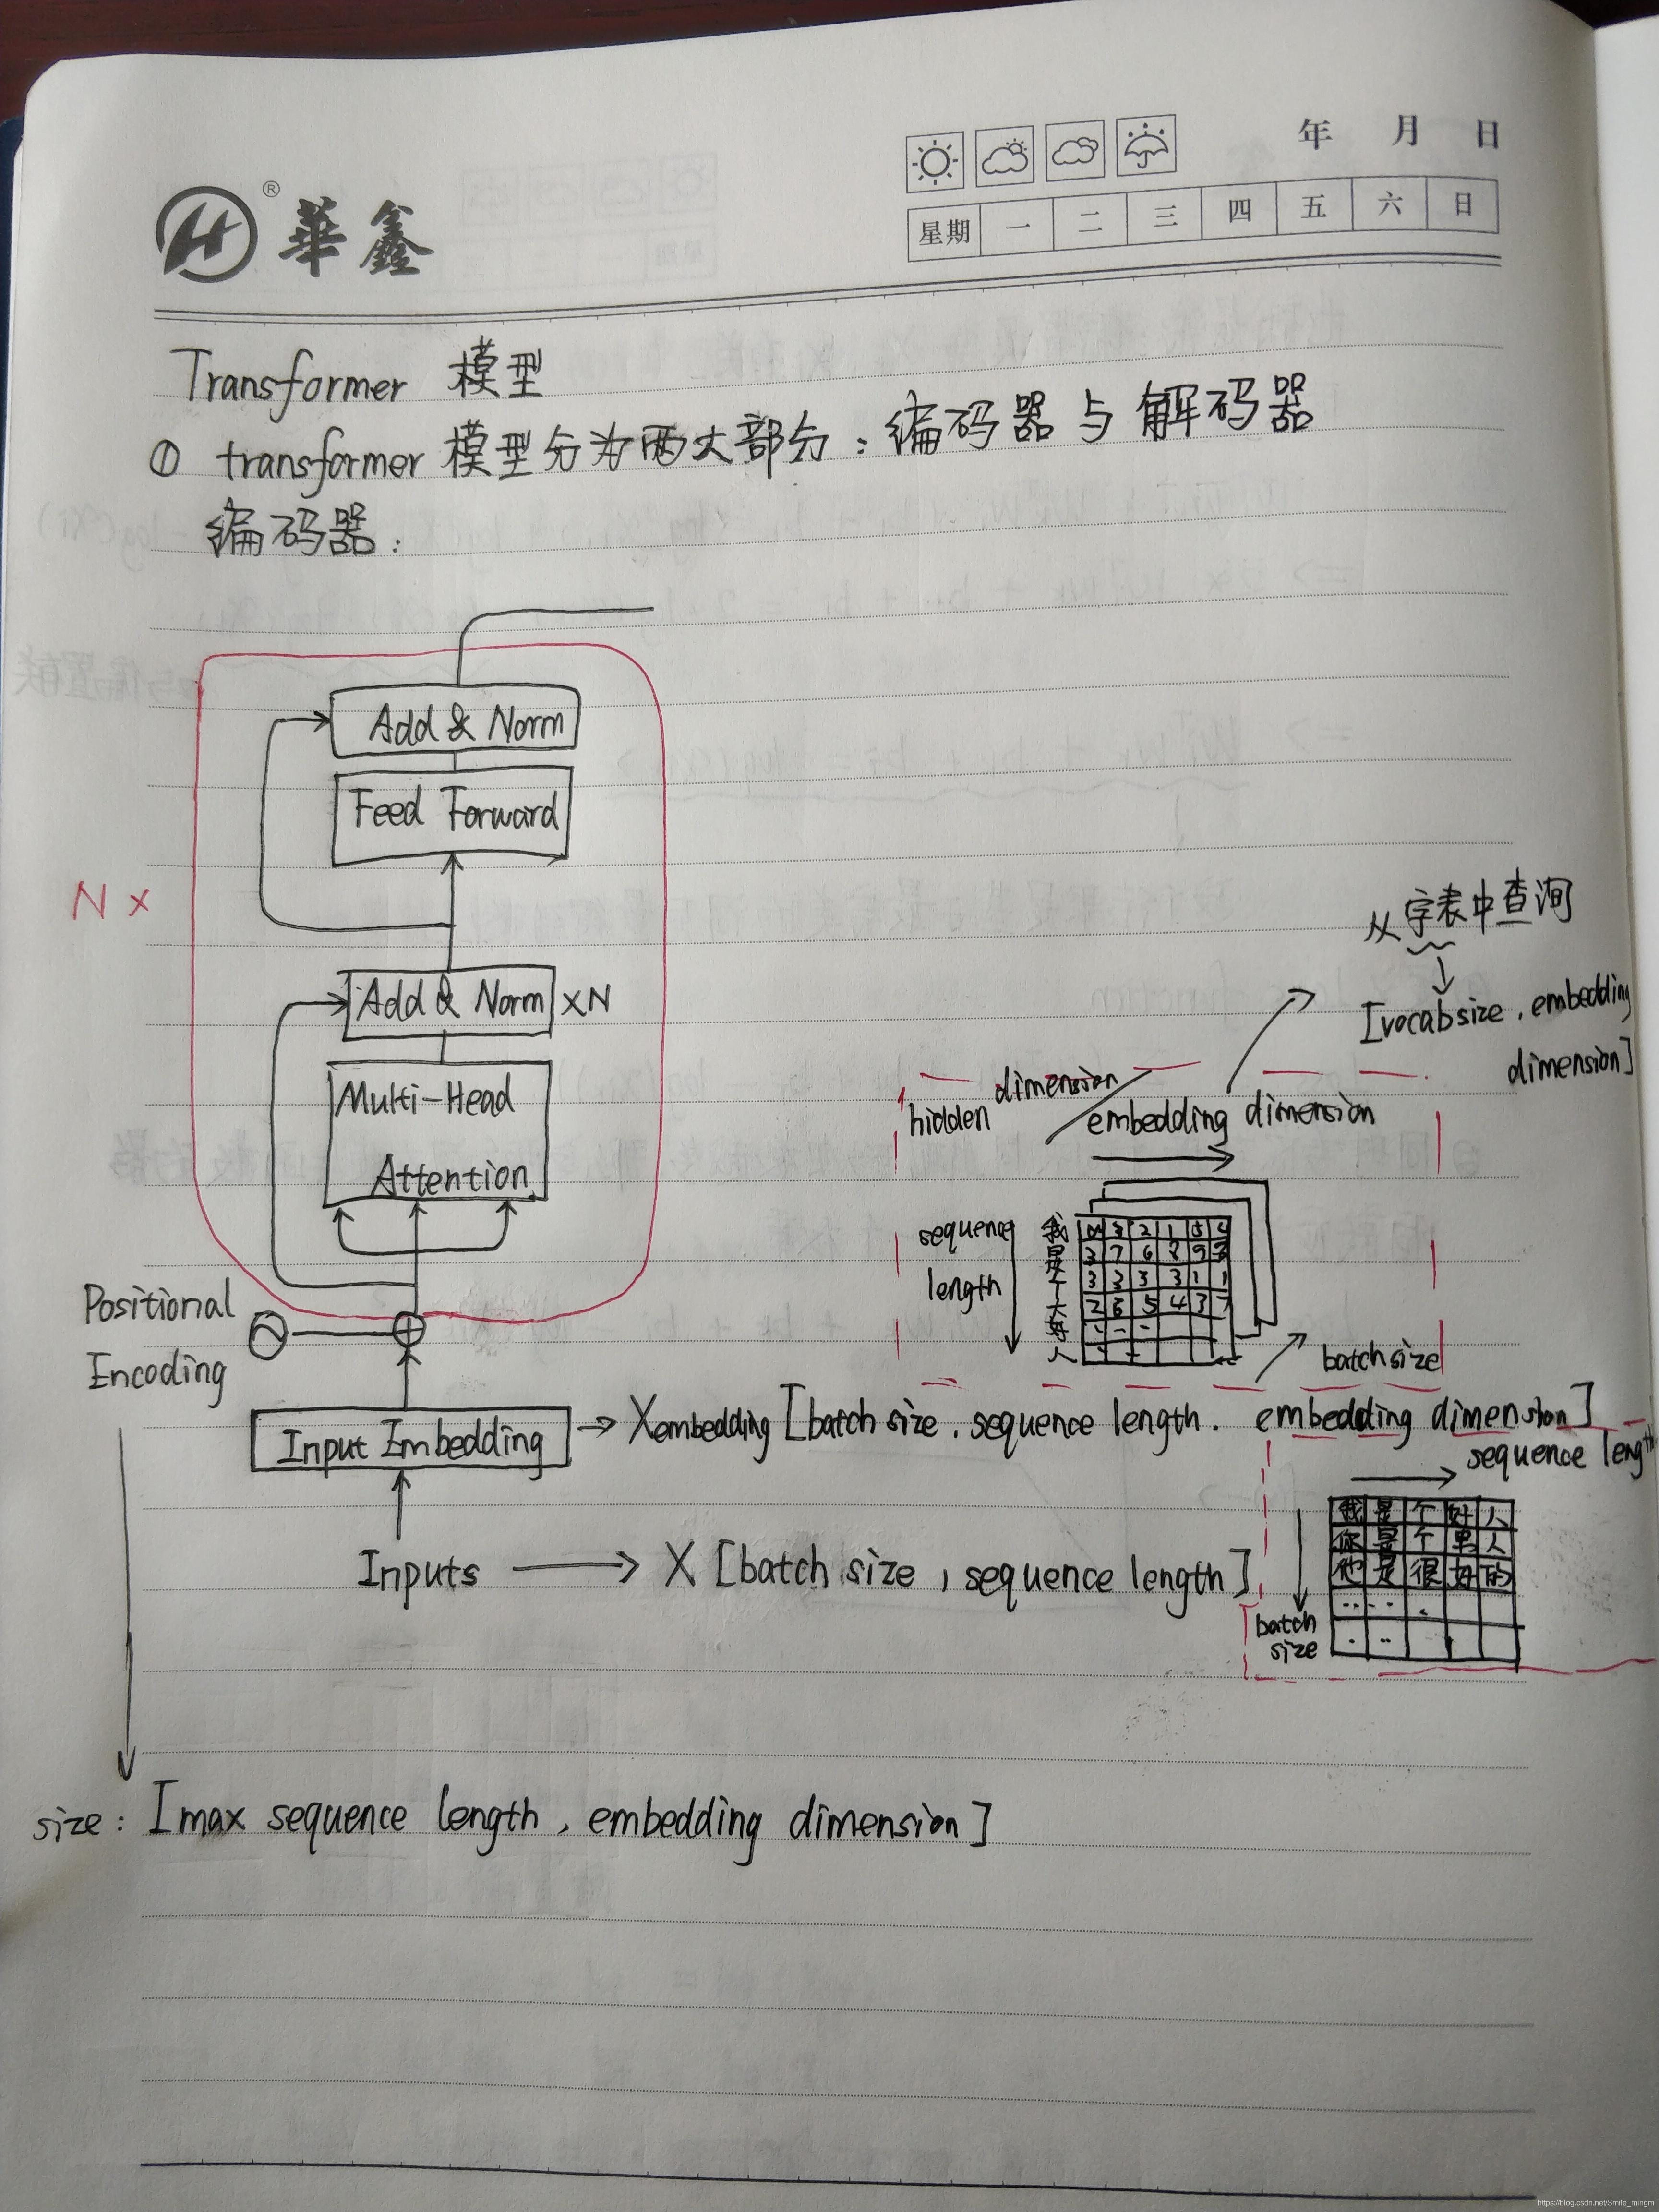 年 月 日
® 華鑫
星期 一 二 三 四 五 六 日
Transformer 模型
① transformer 模型分为两大部分：编码器与解码器
编码器：
Add & Norm
Feed Forward
N ×
Add & Norm ×N
Multi-Head
Attention
Positional
Encoding
Input Embedding → Xembedding [batch size, sequence length, embedding dimension]
Inputs → X [batch size, sequence length]
从字表中查询
[vocab size, embedding
dimension]
hidden dimension / embedding dimension
sequence
length
我 3 2 1
是 3 7 6 2 9
个 3 3 3 3 1 1
大 2 6 5 4 3 7
好
人
batch size
sequence length
我 是 个 好 人
你 是 个 男 人
他 是 很 好 的
batch
size
size: [max sequence length, embedding dimension]
https://blog.csdn.net/Smile_mingm